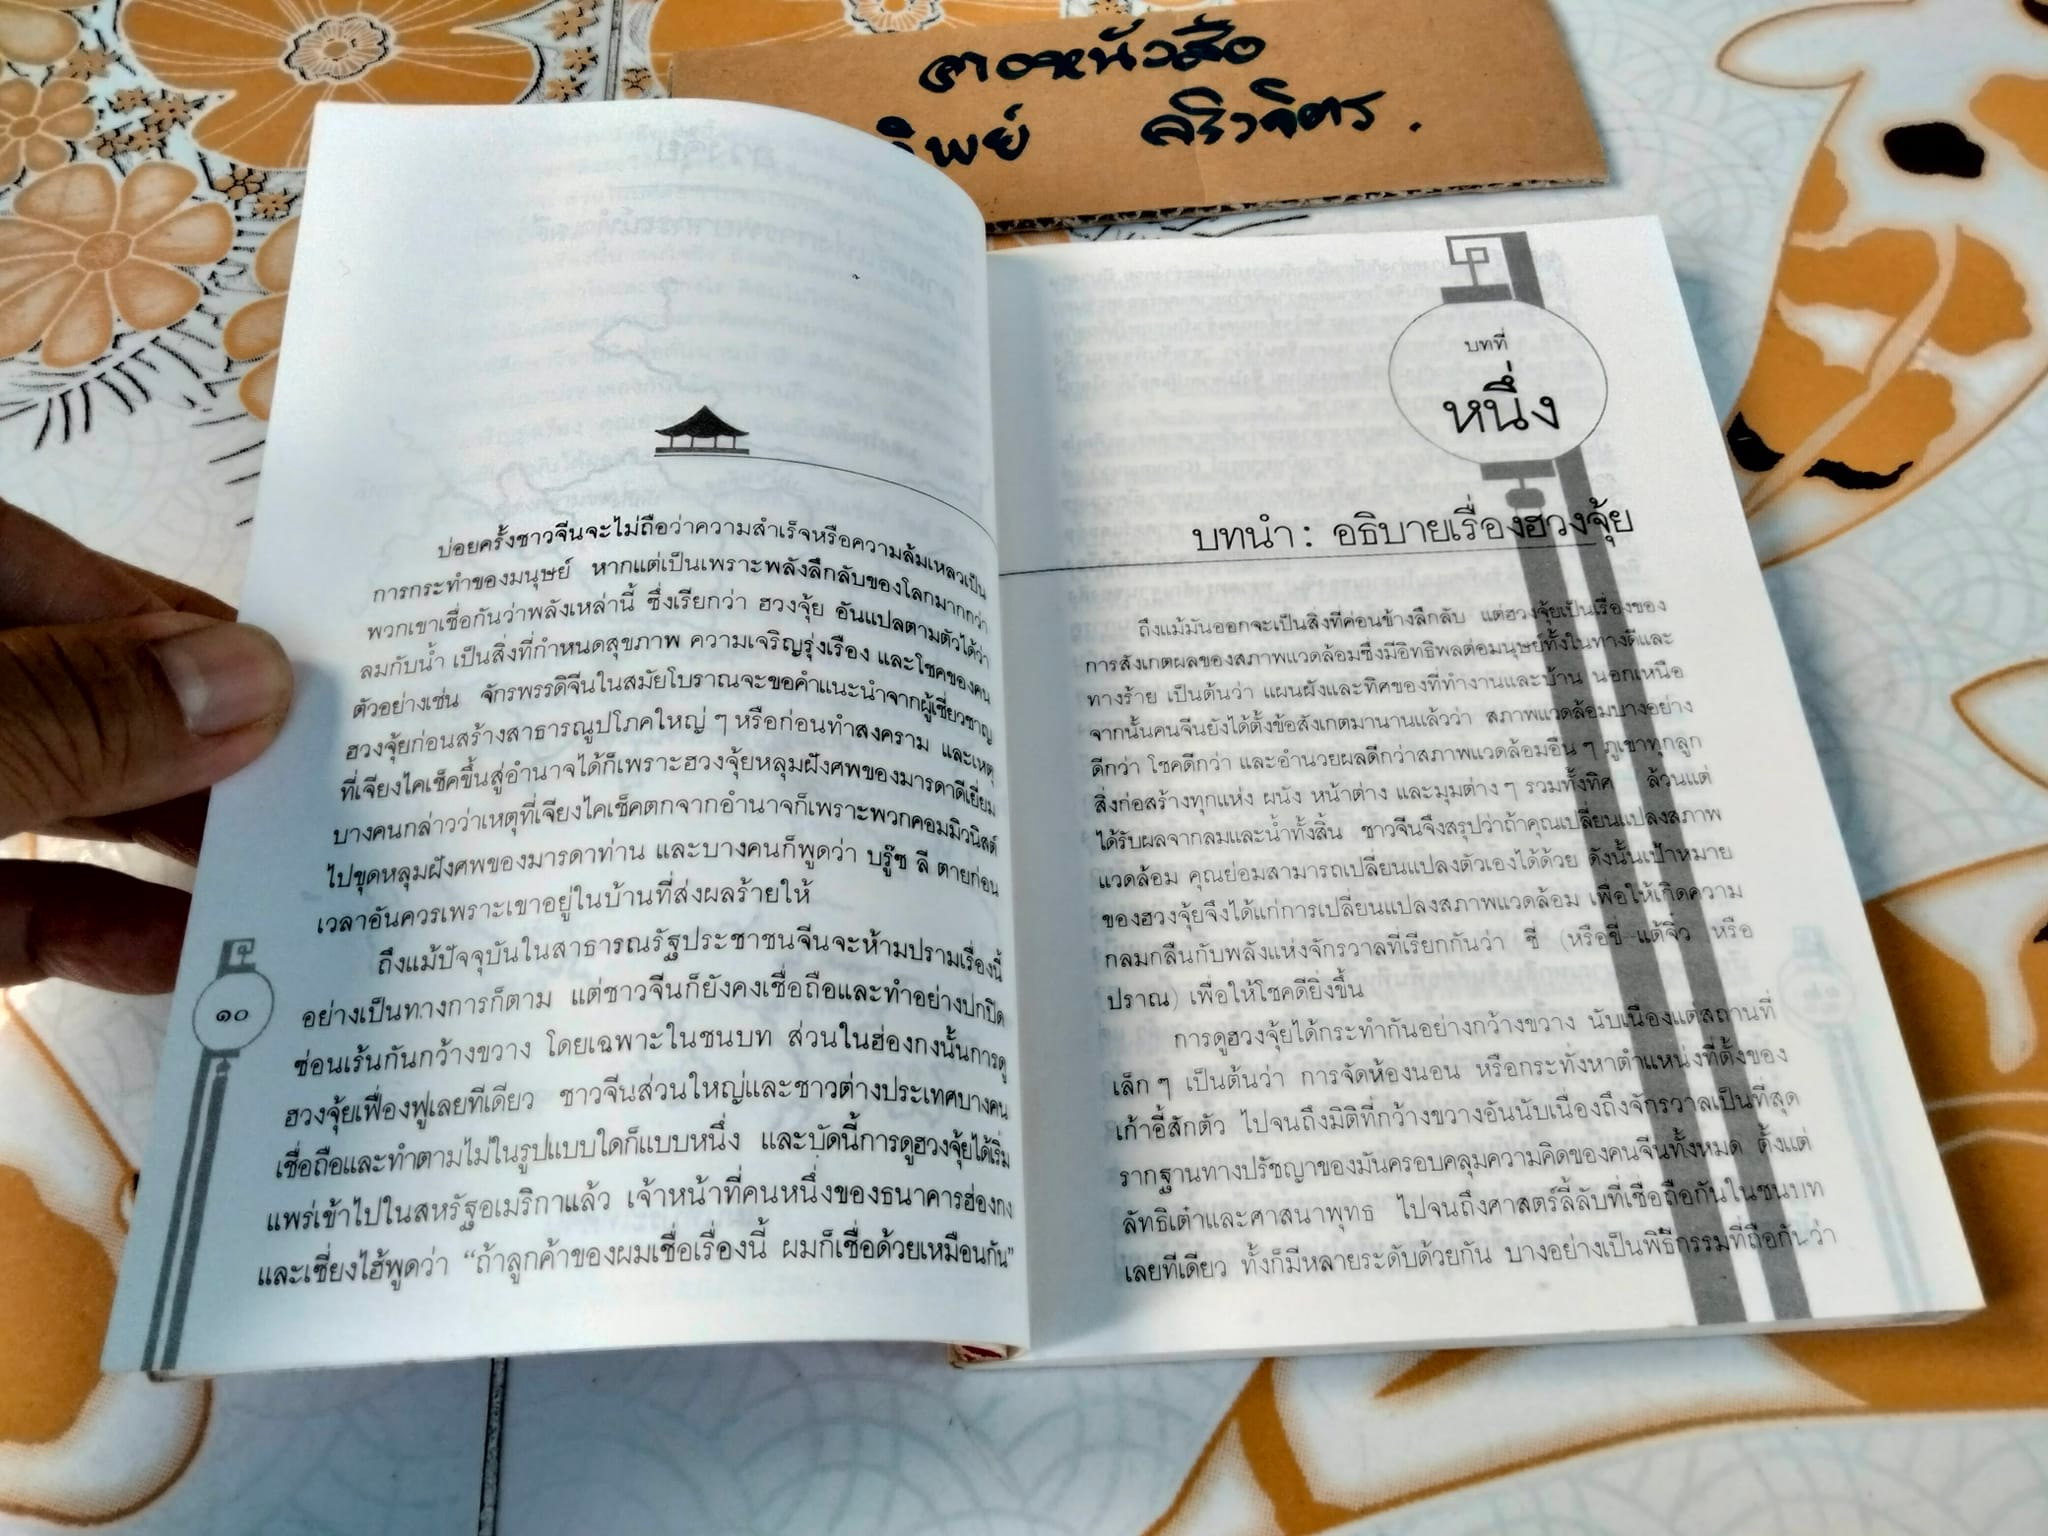 ลางหนังสือ
ทิพย์ ศริวจิตร.
บ่อยครั้งชาวจีนจะไม่ถือว่าความสำเร็จหรือความล้มเหลวเป็น
การกระทำของมนุษย์ หากแต่เป็นเพราะพลังลึกลับของโลกมากกว่า
พวกเขาเชื่อกันว่าพลังเหล่านี้ ซึ่งเรียกว่า ฮวงจุ้ย อันแปลตามตัวได้ว่า
ลมกับน้ำ เป็นสิ่งที่กำหนดสุขภาพ ความเจริญรุ่งเรือง และโชคของคน
ตัวอย่างเช่น จักรพรรดิจีนในสมัยโบราณจะขอคำแนะนำจากผู้เชี่ยวชาญ
ฮวงจุ้ยก่อนสร้างสาธารณูปโภคใหญ่ ๆ หรือก่อนทำสงคราม และเหตุ
ที่เจียงไคเช็คขึ้นสู่อำนาจได้ก็เพราะฮวงจุ้ยหลุมฝังศพของมารดาดีเยี่ยม
บางคนกล่าวว่าเหตุที่เจียงไคเช็คตกจากอำนาจก็เพราะพวกคอมมิวนิสต์
ไปขุดหลุมฝังศพของมารดาท่าน และบางคนก็พูดว่า บรู๊ซ ลี ตายก่อน
เวลาอันควรเพราะเขาอยู่ในบ้านที่ส่งผลร้ายให้
ถึงแม้ปัจจุบันในสาธารณรัฐประชาชนจีนจะห้ามปรามเรื่องนี้
อย่างเป็นทางการก็ตาม แต่ชาวจีนก็ยังคงเชื่อถือและทำอย่างปกปิด
ซ่อนเร้นกันกว้างขวาง โดยเฉพาะในชนบท ส่วนในฮ่องกงนั้นการดู
ฮวงจุ้ยเฟื่องฟูเลยทีเดียว ชาวจีนส่วนใหญ่และชาวต่างประเทศบางคน
เชื่อถือและทำตามไม่ในรูปแบบใดก็แบบหนึ่ง และบัดนี้การดูฮวงจุ้ยได้เริ่ม
แพร่เข้าไปในสหรัฐอเมริกาแล้ว เจ้าหน้าที่คนหนึ่งของธนาคารฮ่องกง
และเซี่ยงไฮ้พูดว่า “ถ้าลูกค้าของผมเชื่อเรื่องนี้ ผมก็เชื่อด้วยเหมือนกัน”
๑๐
บทที่
หนึ่ง
บทนำ : อธิบายเรื่องฮวงจุ้ย
ถึงแม้มันออกจะเป็นสิ่งที่ค่อนข้างลึกลับ แต่ฮวงจุ้ยเป็นเรื่องของ
การสังเกตผลของสภาพแวดล้อมซึ่งมีอิทธิพลต่อมนุษย์ทั้งในทางดีและ
ทางร้าย เป็นต้นว่า แผนผังและทิศของที่ทำงานและบ้าน นอกเหนือ
จากนั้นคนจีนยังได้ตั้งข้อสังเกตมานานแล้วว่า สภาพแวดล้อมบางอย่าง
ดีกว่า โชคดีกว่า และอำนวยผลดีกว่าสภาพแวดล้อมอื่น ๆ ภูเขาทุกลูก
สิ่งก่อสร้างทุกแห่ง ผนัง หน้าต่าง และมุมต่าง ๆ รวมทั้งทิศ ล้วนแต่
ได้รับผลจากลมและน้ำทั้งสิ้น ชาวจีนจึงสรุปว่าถ้าคุณเปลี่ยนแปลงสภาพ
แวดล้อม คุณย่อมสามารถเปลี่ยนแปลงตัวเองได้ด้วย ดังนั้นเป้าหมาย
ของฮวงจุ้ยจึงได้แก่การเปลี่ยนแปลงสภาพแวดล้อม เพื่อให้เกิดความ
กลมกลืนกับพลังแห่งจักรวาลที่เรียกกันว่า ชี่ (หรือขี่ แต้จิ๋ว หรือ
ปราณ) เพื่อให้โชคดียิ่งขึ้น
การดูฮวงจุ้ยได้กระทำกันอย่างกว้างขวาง นับเนื่องแต่สถานที่
เล็ก ๆ เป็นต้นว่า การจัดห้องนอน หรือกระทั่งหาตำแหน่งที่ตั้งของ
เก้าอี้สักตัว ไปจนถึงมิติที่กว้างขวางอันนับเนื่องถึงจักรวาลเป็นที่สุด
รากฐานทางปรัชญาของมันครอบคลุมความคิดของคนจีนทั้งหมด ตั้งแต่
ลัทธิเต๋าและศาสนาพุทธ ไปจนถึงศาสตร์ลี้ลับที่เชื่อถือกันในชนบท
เลยทีเดียว ทั้งก็มีหลายระดับด้วยกัน บางอย่างเป็นพิธีกรรมที่ถือกันว่า